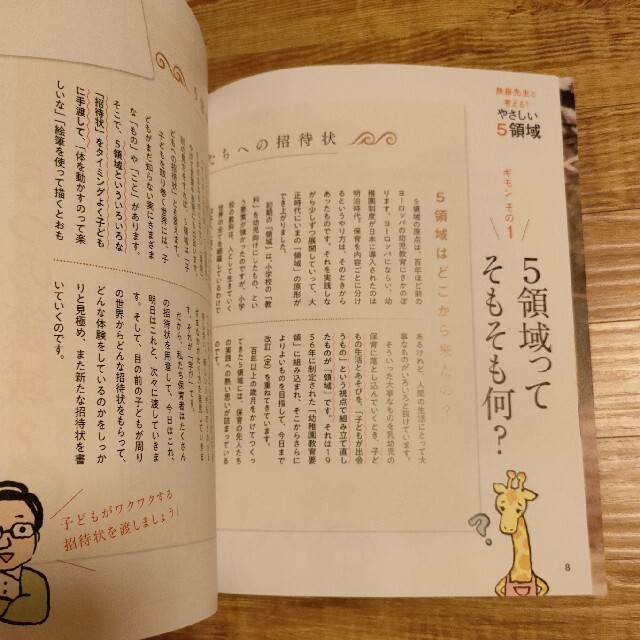 無藤先生と
考える!
やさしい
5領域
ギモン その1
5領域って
そもそも何?
5領域はどこから来たの?
5領域の原点は、百年ほど前の
ヨーロッパの幼児教育にさかのぼ
ります。ヨーロッパにならい、幼
稚園制度が日本に導入されたのは
明治時代。保育を内容ごとに分け
るというやり方は、そのときから
あったものです。それを実践しな
がら少しずつ展開していって、大
正時代にいまの「領域」の原形が
でき上がりました。
初期の「領域」は、小学校の「教
科」を幼児向けにしたもの、とい
う要素が強かったのですが、小学
校の教科は、人として生きていく
世界の全てを網羅しているわけで
あるけれど、人間の生活にとって大
事なものがいろいろと抜けています。
そういった大事なものを乳幼児の
保育に落とし込んでいくとき、子ど
もの生活とあそびを、「子どもが出会
うもの」という視点で組み立て直し
たものが「領域」です。それは19
56年に制定された「幼稚園教育要
領」に組み込まれ、そこからさらに
よりよいものを目指して、今日まで
改訂(定)を重ねてきています。
百年以上の歳月をかけてつくっ
てきた5領域には、保育の先人たち
の実践への熱い思いが詰まっている
ちへの招待状
どもへの招待状」とも言えます。
子どもを取り巻く世界には、子
どもがまだ知らない実にさまざま
な「もの」や「こと」があります。
そこで、5領域といういろいろな
「招待状」をタイミングよく子ども
に手渡して、「体を動かすのって楽
しいな」「絵筆を使って描くとおも
す。それが「学び」です。
だから、私たち保育者はたくさん
の招待状を用意して、今日はこれ、
明日はこれと、次々に渡していきま
す。そして、目の前の子どもが周り
の世界からどんな招待状をもらって、
どんな体験をしているのかをしっか
りと見極め、また新たな招待状を書
いていくのです。
子どもがワクワクする
招待状を渡しましょう
?
8